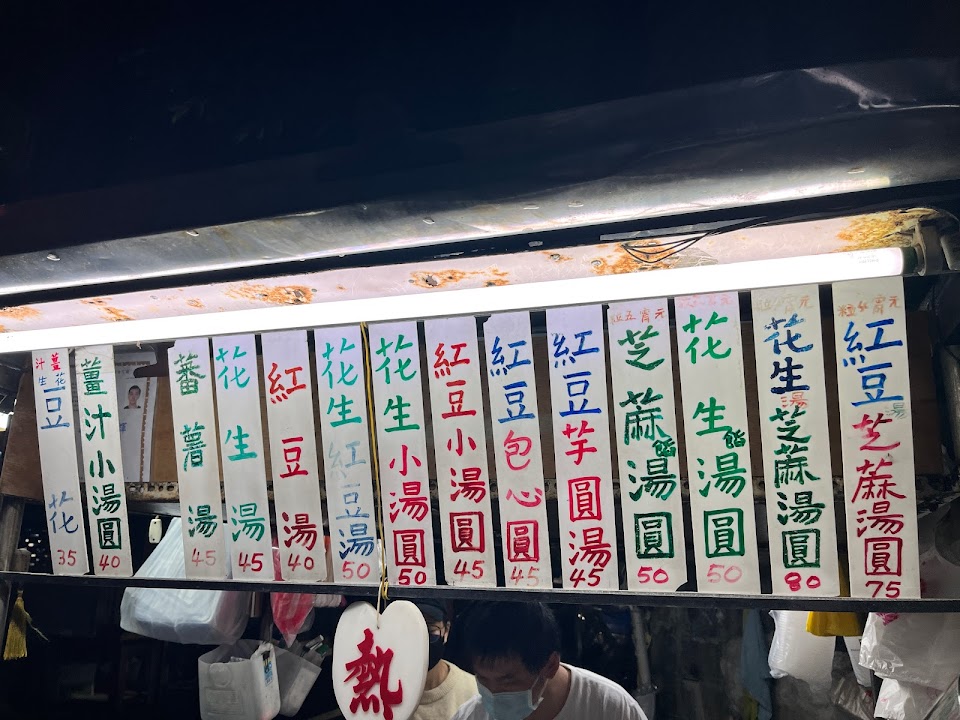 薑汁 花生 豆花 35
薑汁小湯圓 40
蕃薯湯 45
花生湯 45
紅豆湯 40
花生紅豆湯 50
花生小湯圓 50
紅豆小湯圓 45
紅豆包心圓 45
紅豆芋圓湯 45
芝麻餡湯圓 50
花生餡湯圓 50
花生湯芝麻湯圓 80
紅豆湯芝麻湯圓 75
熱